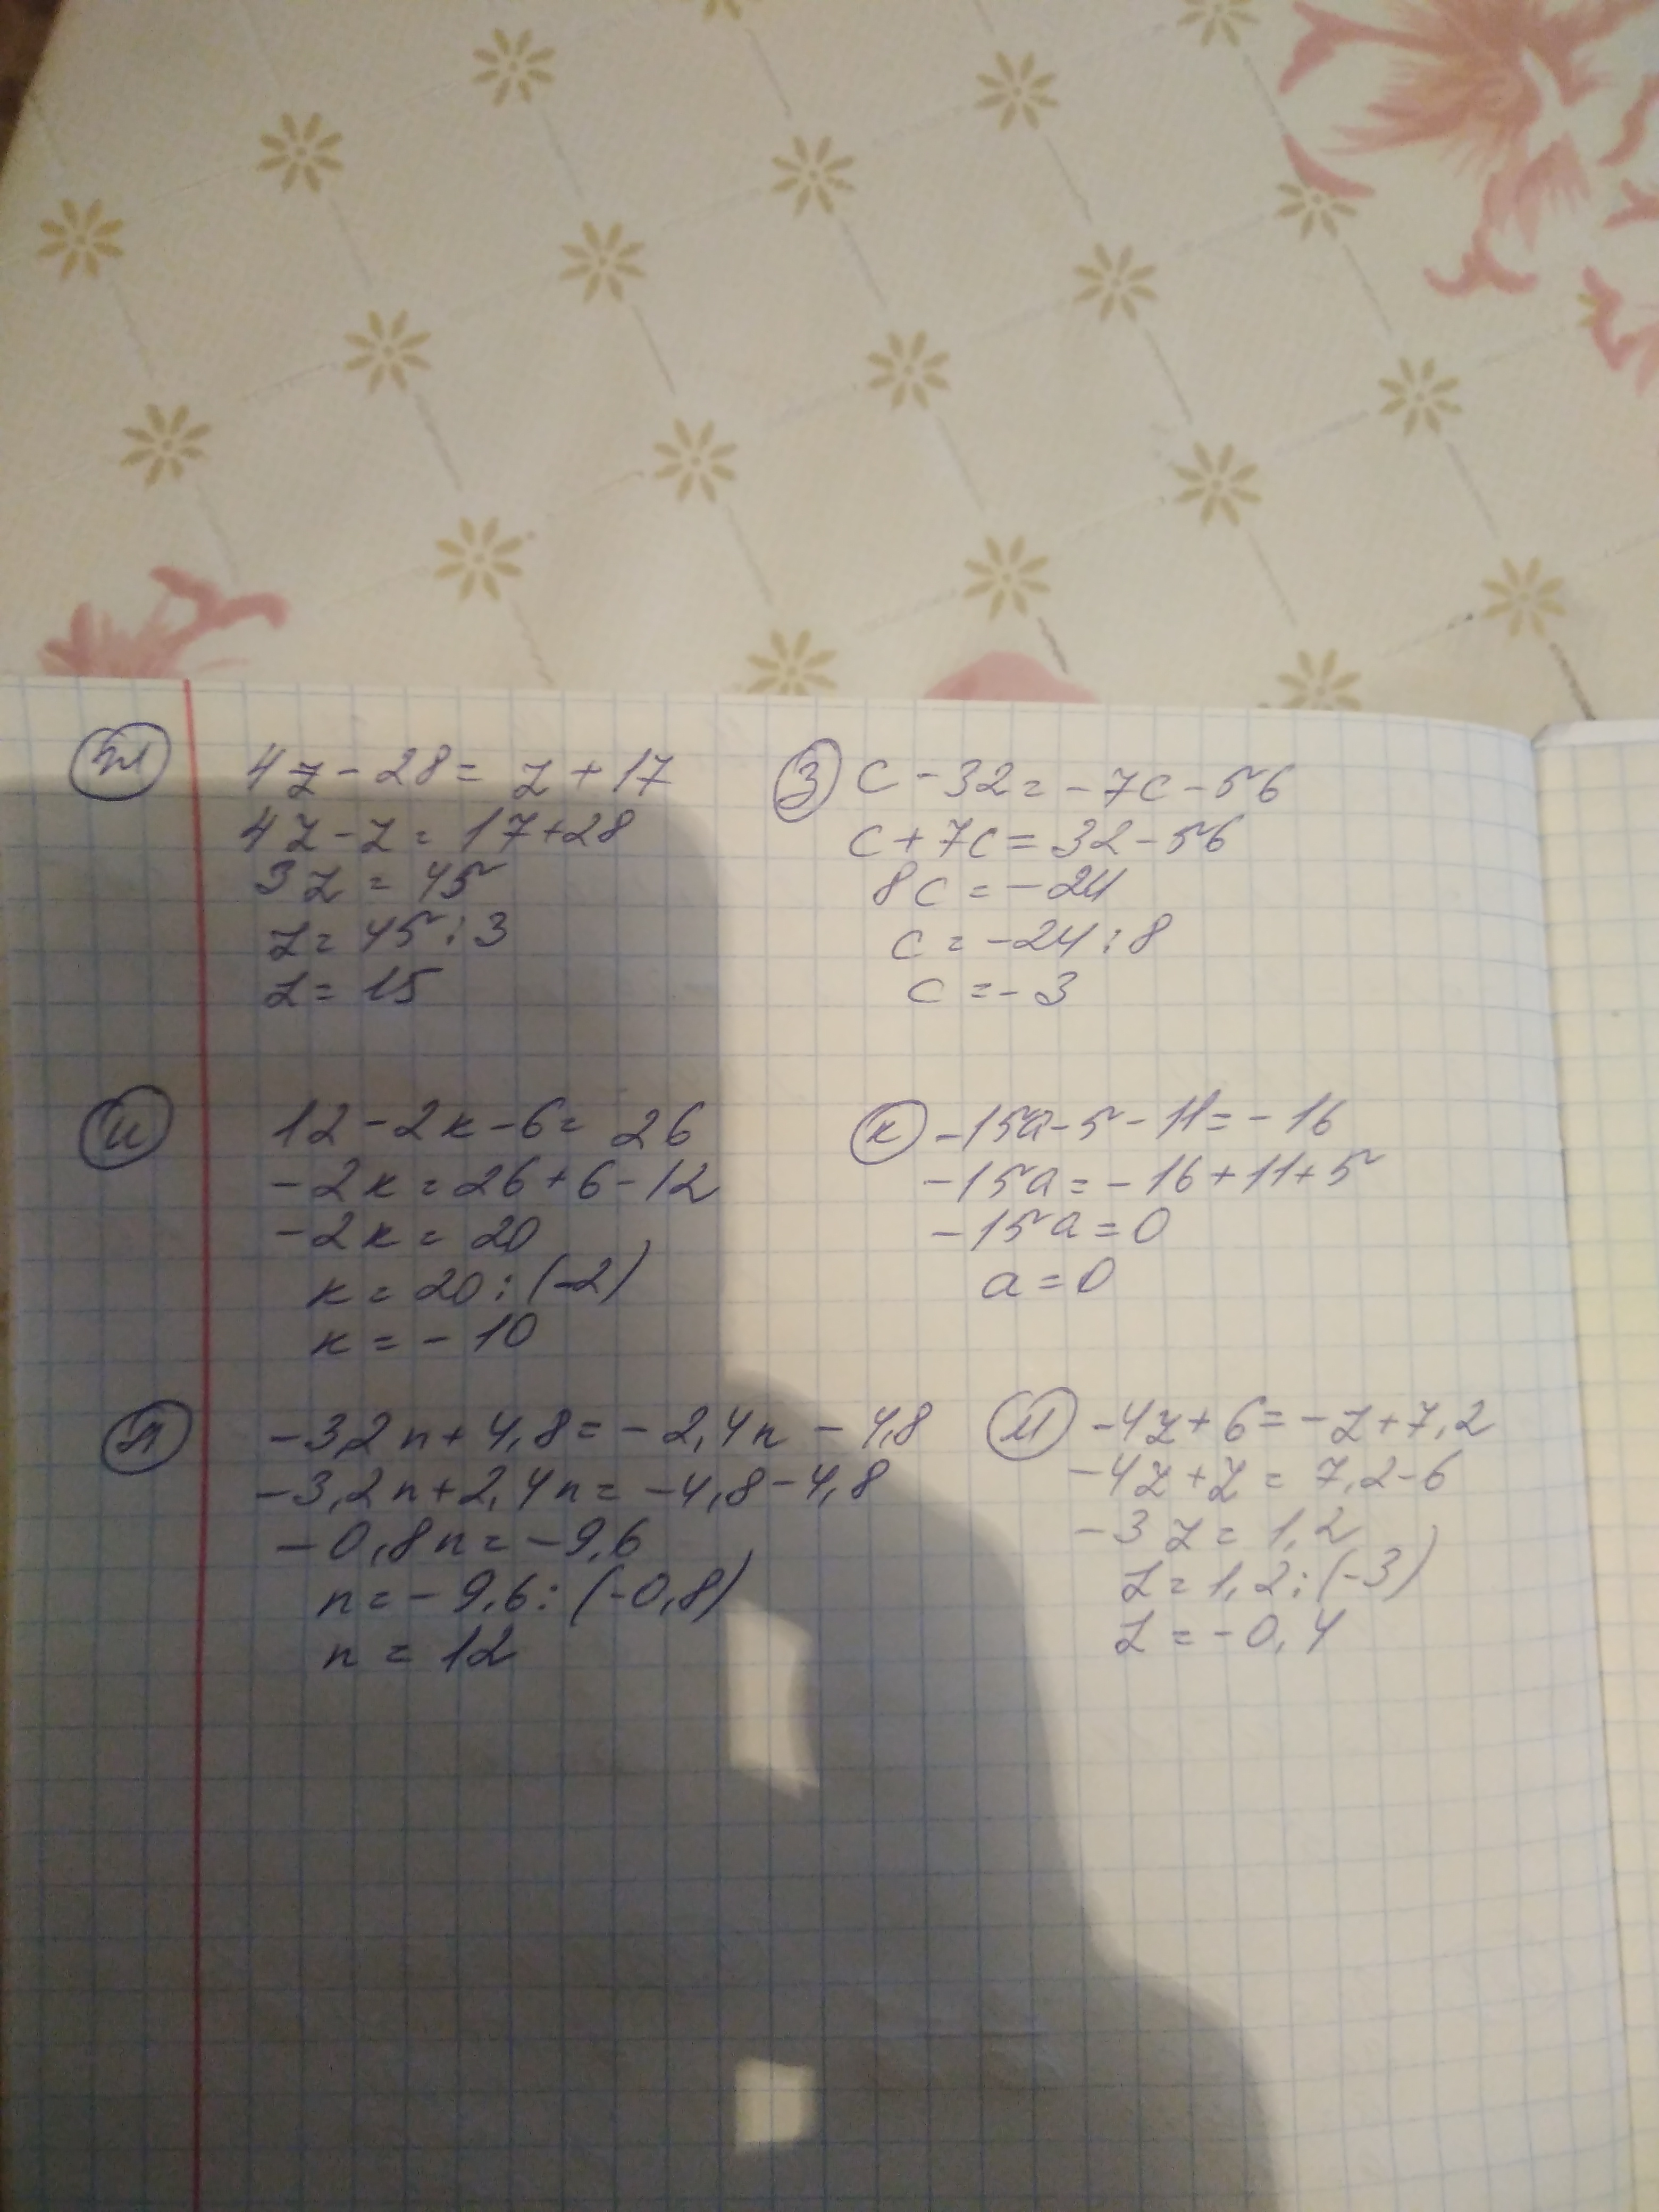 ж
4z - 28 = z + 17
4z - z = 17 + 28
3z = 45
z = 45 : 3
z = 15
з
c - 32 = - 7c - 56
c + 7c = 32 - 56
8c = - 24
c = - 24 : 8
c = - 3
и
12 - 2к - 6 = 26
- 2к = 26 + 6 - 12
- 2к = 20
к = 20 : (-2)
к = - 10
к
- 15a - 5 - 11 = - 16
- 15a = - 16 + 11 + 5
- 15a = 0
a = 0
л
- 3,2n + 4,8 = - 2,4n - 4,8
- 3,2n + 2,4n = - 4,8 - 4,8
- 0,8n = - 9,6
n = - 9,6 : (-0,8)
n = 12
м
- 4z + 6 = - z + 7,2
- 4z + z = 7,2 - 6
- 3z = 1,2
z = 1,2 : (-3)
z = - 0,4